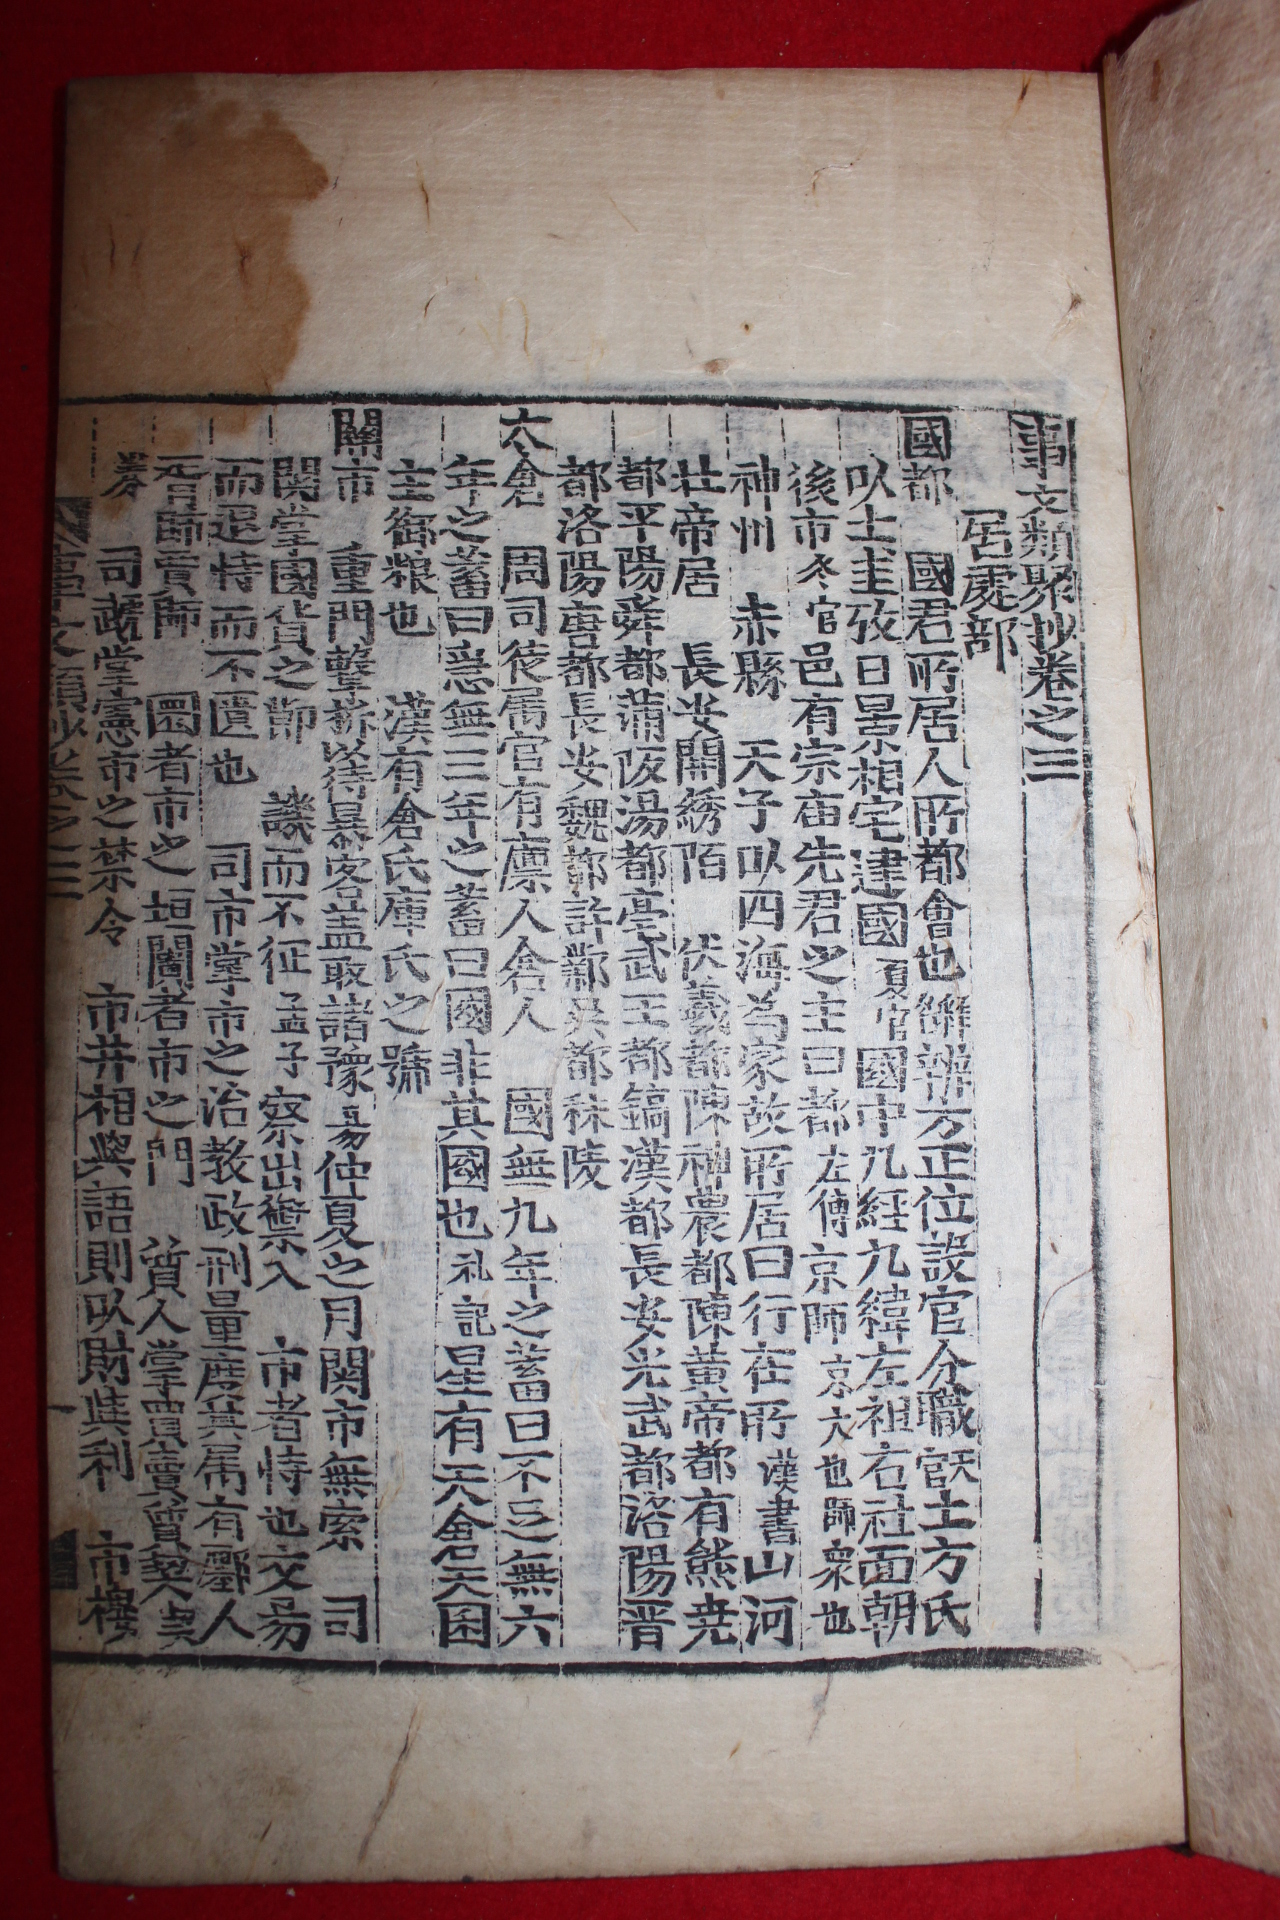 事文類聚抄卷之三
居處部
國都 國君所居人所都會也 辨方正位設官分職 天官 土方氏
以土圭致日景相宅建國 夏官 國中九經九緯左祖右社面朝
後市 冬官 邑有宗庙先君之主曰都 左傳 京師 京大也師衆也
神州 赤縣 天子以四海爲家故所居曰行在所 漢書 山河
壮帝居 長安開綉陌 伏羲都陳神農都陳黃帝都有熊尭
都平陽舜都蒲阪湯都亳武王都鎬漢都長安光武都洛陽晋
都洛陽唐都長安魏都許鄴吳都秣陵
太倉 周司徒属官有廪人倉人 國無九年之蓄曰不足無六
年之蓄曰急無三年之蓄曰國非其國也 礼記 星有天倉天囷
主御粮也 漢有倉氏庫氏之號
關市 重門擊柝以待暴客盖取諸豫 易 仲夏之月関市無索 司
関掌國貨之節 譏而不征 孟子 察出禦入 市者恃也交易
而退恃而不匱也 司市掌市之治教政刑量度其属有鄽人
胥師賈師 闤者市之垣闠者市之門 質人掌賣買質契
券 司虣掌憲市之禁令 市井相與語則以財與利 市樓
事文類抄卷之三 一